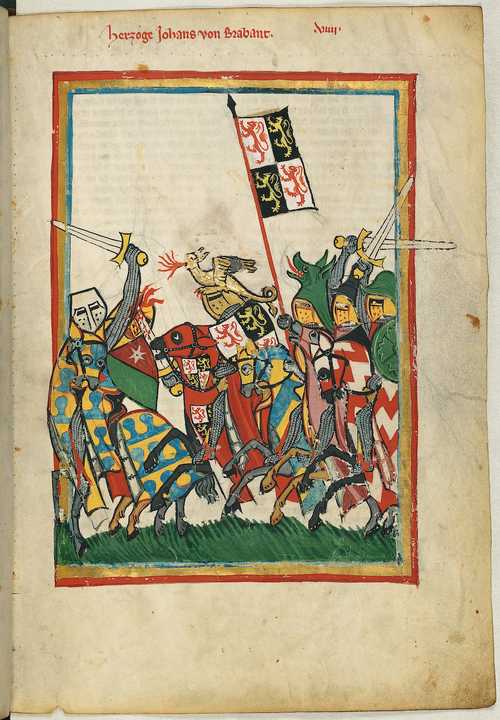 herzoge Johans von Brabant. viiii.